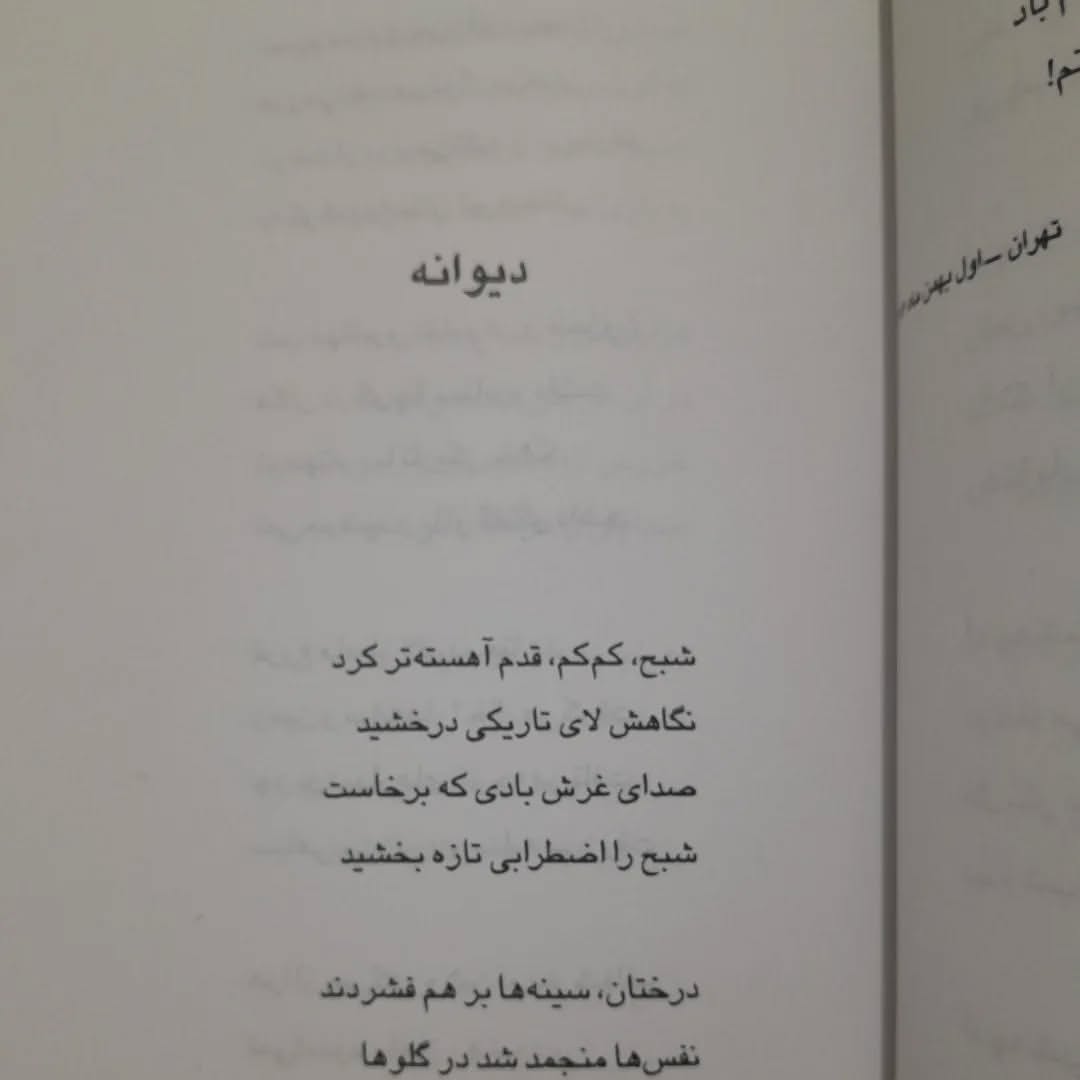 تم!
تهران – اول بهمن
دیوانه
شبح، کم‌کم، قدم آهسته‌تر کرد
نگاهش لای تاریکی درخشید
صدای غرش بادی که برخاست
شبح را اضطرابی تازه بخشید
درختان، سینه‌ها بر هم فشردند
نفس‌ها منجمد شد در گلوها